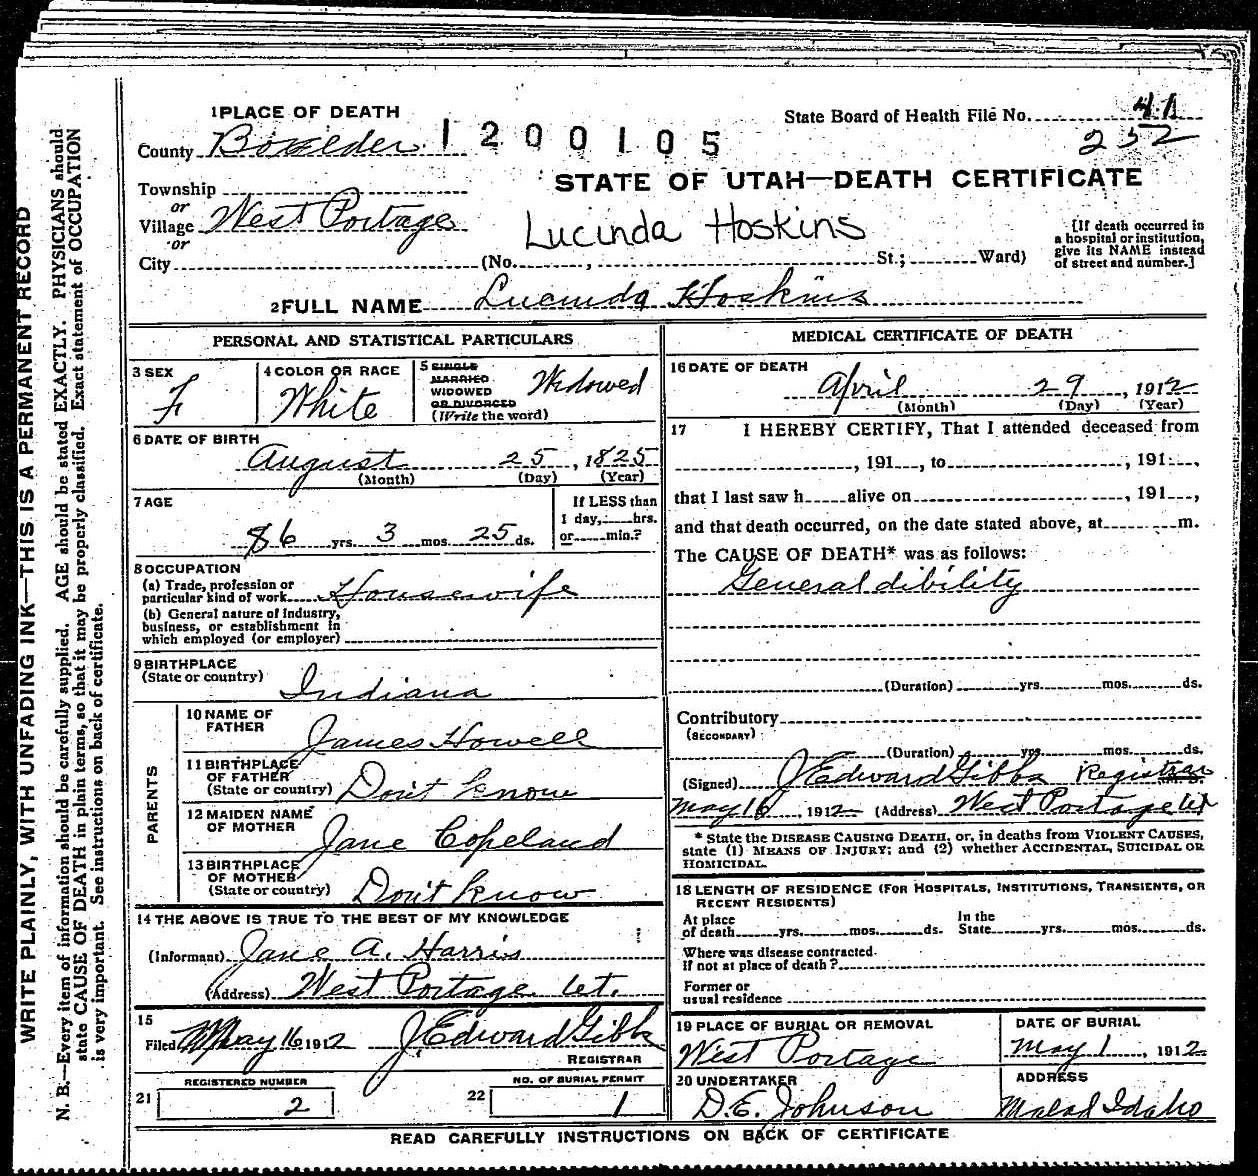 1 PLACE OF DEATH
State Board of Health File No. 41
County Boxelder 1200105
252
STATE OF UTAH—DEATH CERTIFICATE
Township
or
Village West Portage
Lucinda Hoskins
or
City (No. , St.; Ward)
[If death occurred in
a hospital or institution,
give its NAME instead
of street and number.]
2 FULL NAME Lucinda Hoskins
PERSONAL AND STATISTICAL PARTICULARS
3 SEX
F
4 COLOR OR RACE
White
5 SINGLE
MARRIED
WIDOWED
OR DIVORCED
(Write the word)
Widowed
6 DATE OF BIRTH
August 25, 1825
(Month) (Day) (Year)
7 AGE
86 yrs. 3 mos. 25 ds.
If LESS than
1 day, hrs.
or min.?
8 OCCUPATION
(a) Trade, profession or
particular kind of work Housewife
(b) General nature of industry,
business, or establishment in
which employed (or employer)
9 BIRTHPLACE
(State or country)
Indiana
PARENTS
10 NAME OF
FATHER
James Howell
11 BIRTHPLACE
OF FATHER
(State or country) Don't know
12 MAIDEN NAME
OF MOTHER
Jane Copeland
13 BIRTHPLACE
OF MOTHER
(State or country) Don't know
14 THE ABOVE IS TRUE TO THE BEST OF MY KNOWLEDGE
(Informant) Jane A. Harris
(Address) West Portage Ut.
15
Filed May 16 1912 J. Edward Gibbs
REGISTRAR
REGISTERED NUMBER
21 2
NO. OF BURIAL PERMIT
22 1
MEDICAL CERTIFICATE OF DEATH
16 DATE OF DEATH
April 29, 1912
(Month) (Day) (Year)
17 I HEREBY CERTIFY, That I attended deceased from
, 191 , to , 191 ,
that I last saw h alive on , 191 ,
and that death occurred, on the date stated above, at m.
The CAUSE OF DEATH* was as follows:
General dibility
(Duration) yrs. mos. ds.
Contributory
(SECONDARY)
(Duration) yrs. mos. ds.
(Signed) J Edward Gibbs Registrar
May 16, 1912 (Address) West Portage Ut
* State the DISEASE CAUSING DEATH, or, in deaths from VIOLENT CAUSES,
state (1) MEANS OF INJURY; and (2) whether ACCIDENTAL, SUICIDAL OR
HOMICIDAL.
18 LENGTH OF RESIDENCE (FOR HOSPITALS, INSTITUTIONS, TRANSIENTS, OR
RECENT RESIDENTS)
At place
of death yrs. mos. ds.
In the
State yrs. mos. ds.
Where was disease contracted
If not at place of death?
Former or
usual residence
19 PLACE OF BURIAL OR REMOVAL
West Portage
DATE OF BURIAL
May 1, 1912
20 UNDERTAKER
D. E. Johnson
ADDRESS
Malad Idaho
READ CAREFULLY INSTRUCTIONS ON BACK OF CERTIFICATE
WRITE PLAINLY, WITH UNFADING INK—THIS IS A PERMANENT RECORD
N. B.—Every item of information should be carefully supplied. AGE should be stated EXACTLY. PHYSICIANS should
state CAUSE OF DEATH in plain terms, so that it may be properly classified. Exact statement of OCCUPATION
is very important. See instructions on back of certificate.